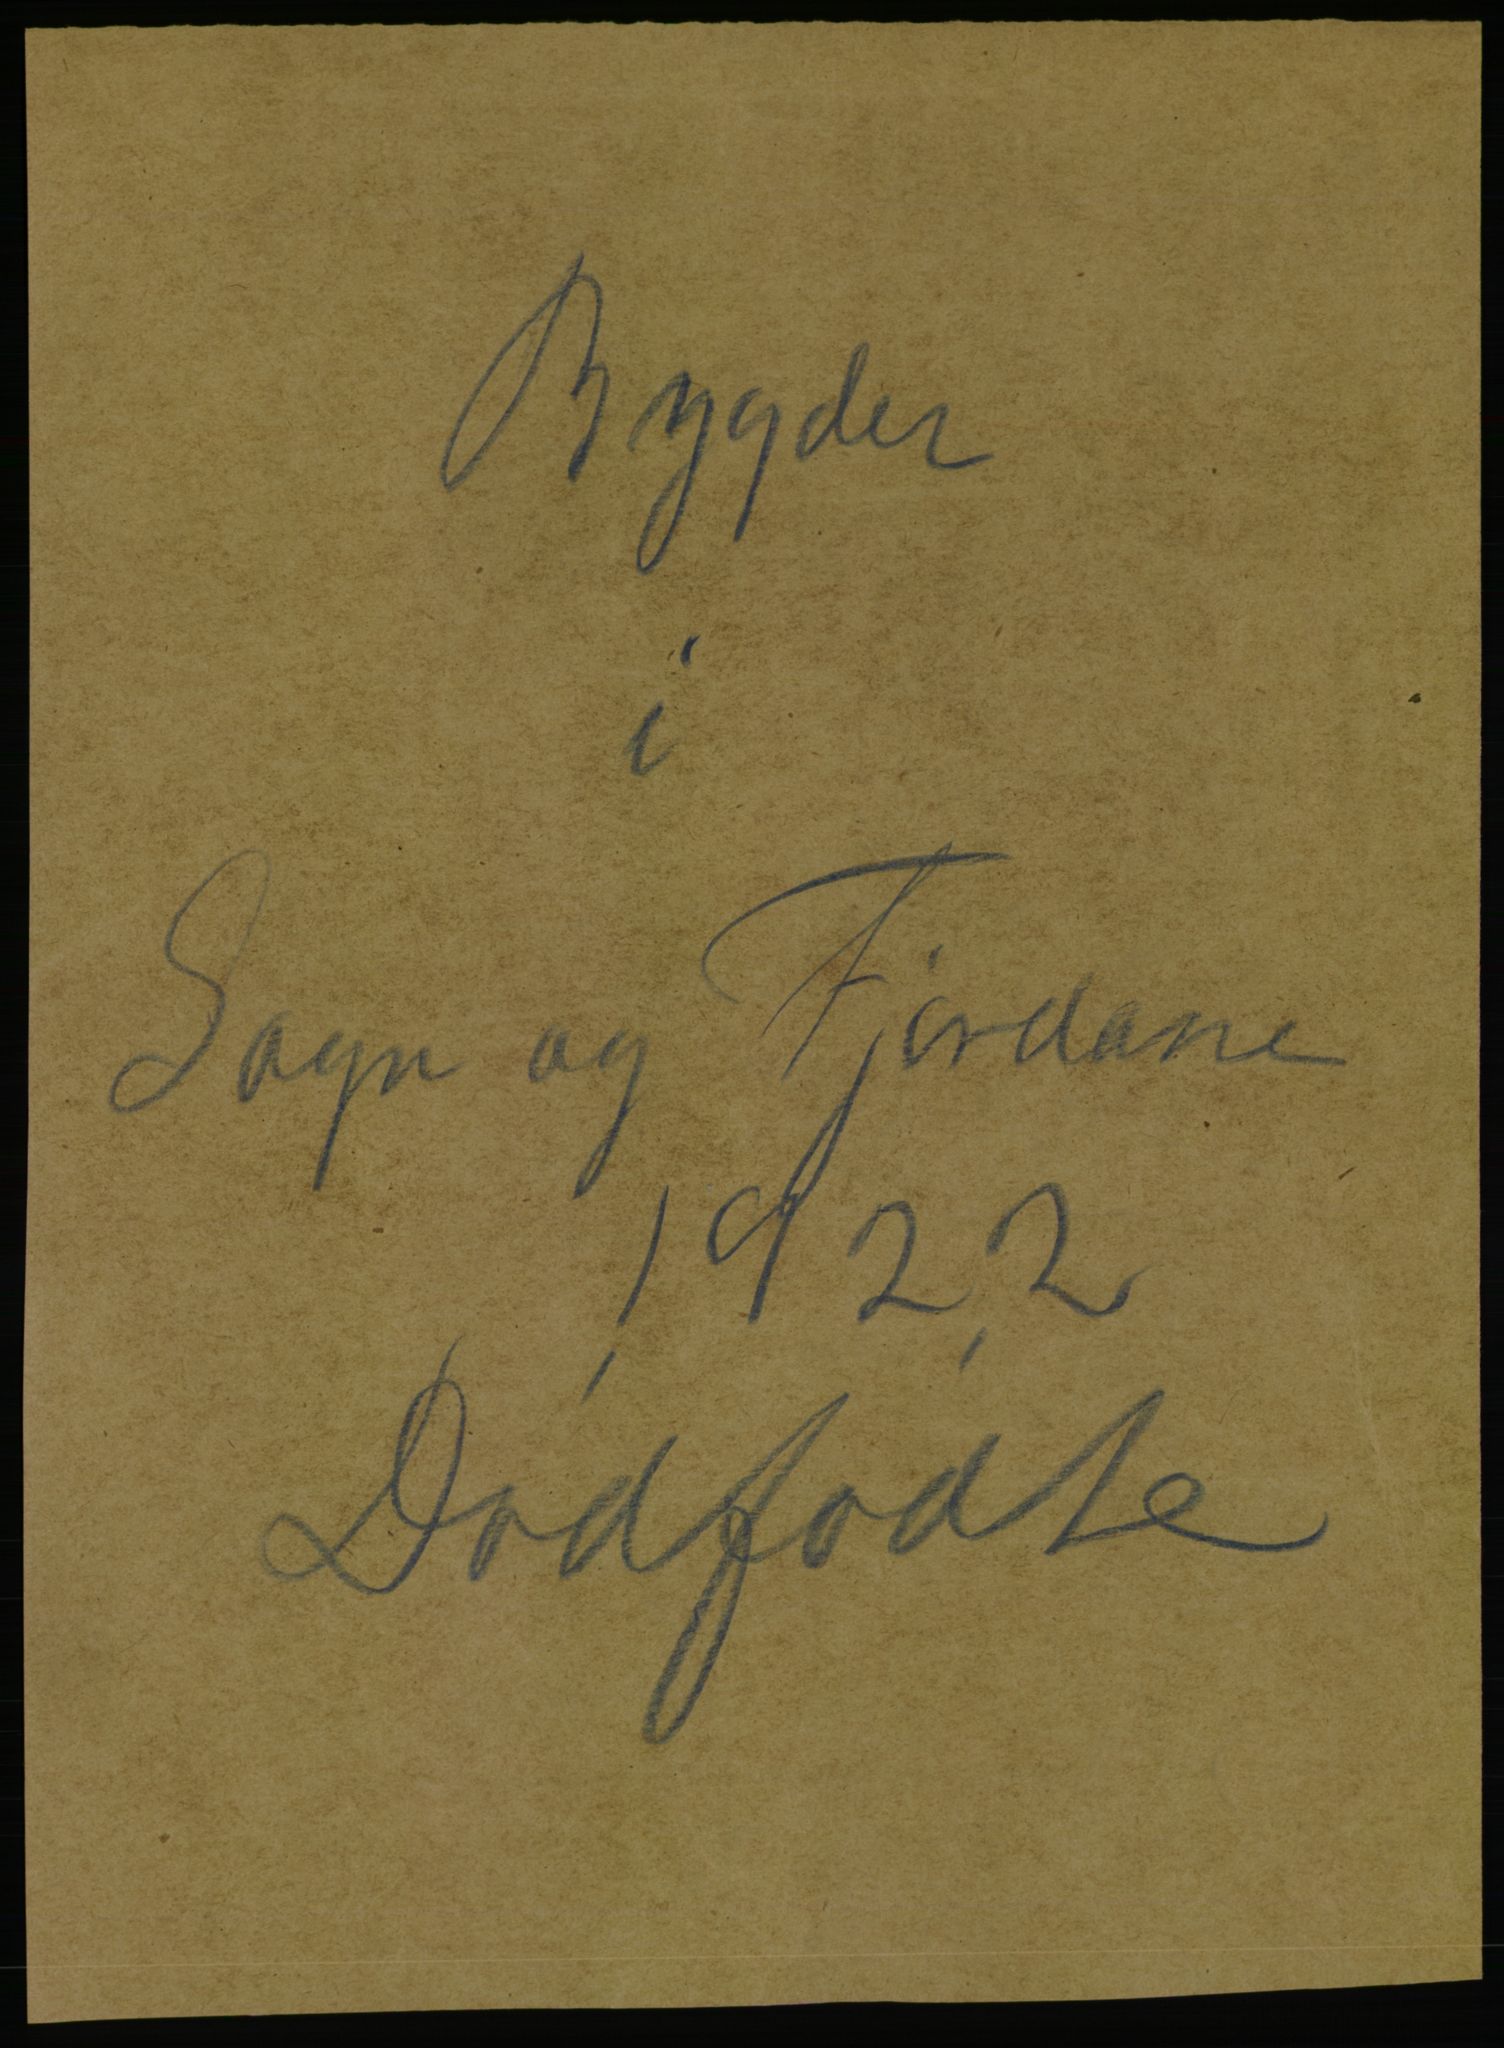 Bygder
i
Sogn og Fjordane
1922
Dødfødte